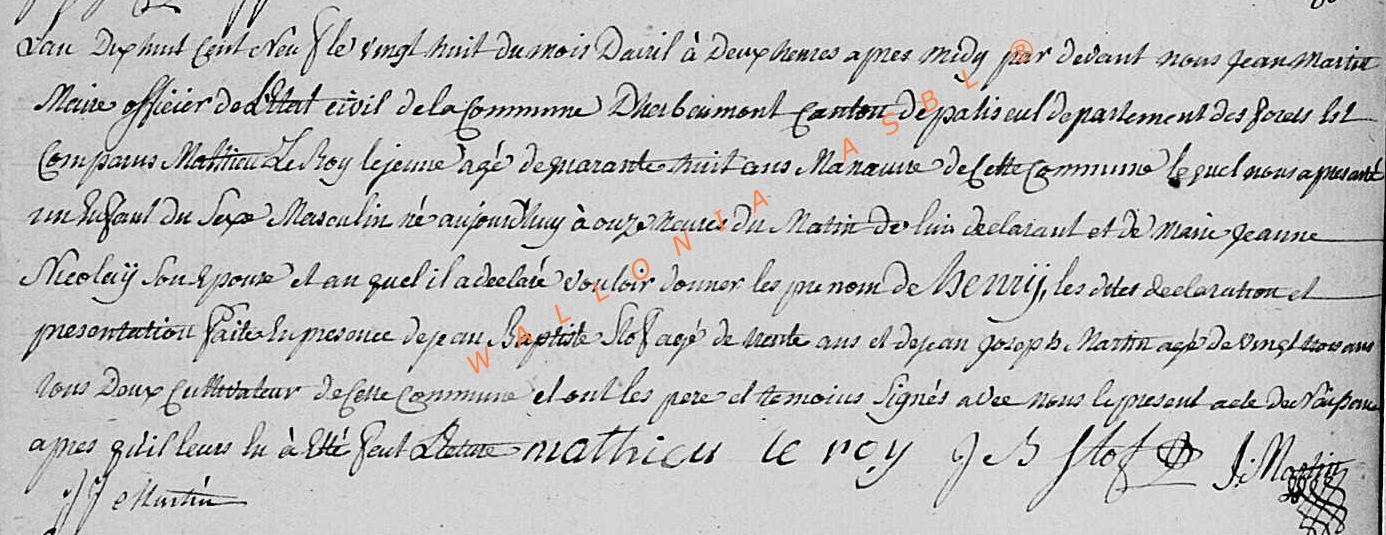 L'an Dix huit Cent Neuf le vingt huit du mois Davril à Deux heures apres midy par devant nous Jean Martin
Maire officier de L'Etat civil de la Commune Dherbeumont Canton de paliseul departement des forets Est
Comparus Mathieu Le Roy le jeune agé de quarante huit ans Manœuvre de Cette Commune le quel nous a presanté
un Enfant du Sexe Masculin né aujourd'huy à onze heures du Matin de lui declarant et de Marie Jeanne
Nicolaÿ Son Epouse et au quel il a declaré vouloir donner les prenom de henrÿ, les dites declaration et
presentation faite En presence de jean Baptiste Stof agé de trente ans et de jean joseph Martin agé de vingt trois ans
tous Deux Cultivateur de Cette Commune et ont les pere et temoins Signés avec nous le present acte de
apres qu'il leurs lu à Eté feut Lecture mathieu le roy J B Stof J: Martin
J J Martin
WALLONIA ASBL ®